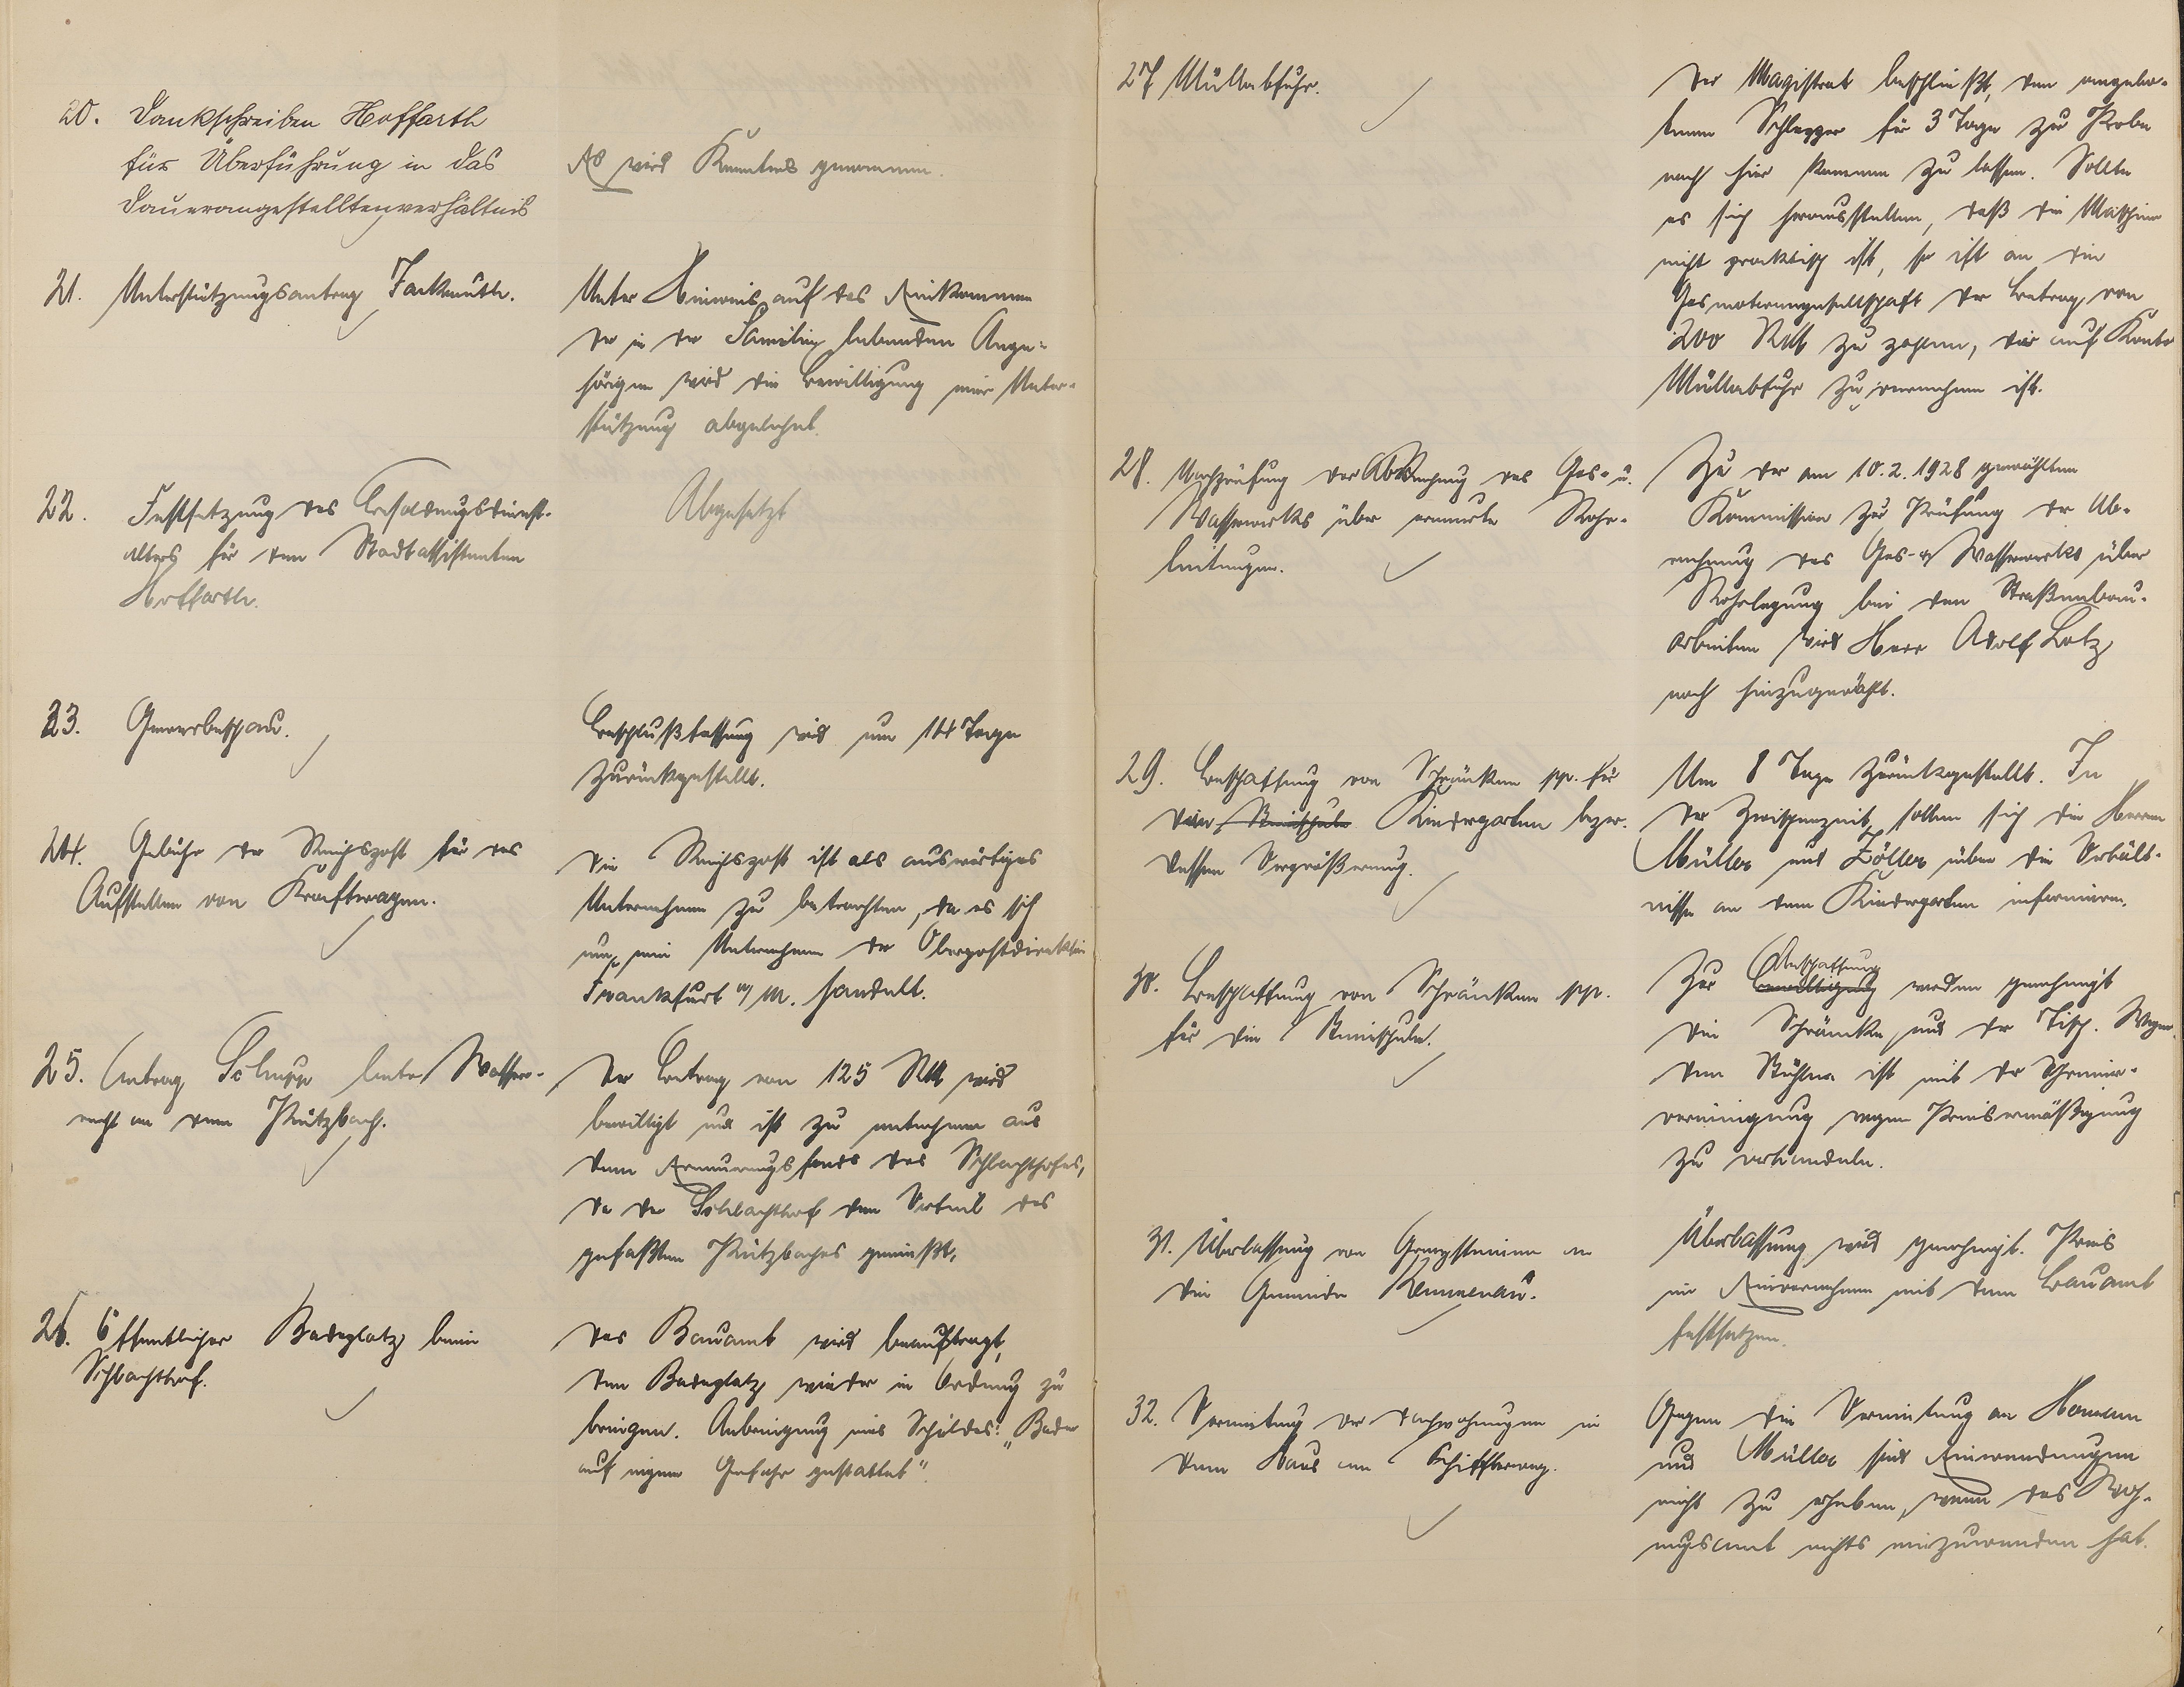 20. Dankschreiben Hoffarth
für Überführung in das
Dauerangestelltenverhältnis
Es wird Kenntnis genommen.
21. Unterstützungsantrag
Unter Hinweis auf das Einkommen
der in der Familie lebenden Ange-
hörigen wird die Bewilligung einer Unter-
stützung abgelehnt.
22. Festsetzung des Besoldungsdienst-
alters für den Stadtassistenten
Hoffarth.
Abgesetzt
23. Gewerbeschau.
Beschlußfassung wird um 14 Tage
zurückgestellt.
24. Gebühr der Reichspost für das
Aufstellen von Kraftwagen.
Die Reichspost ist als auswärtiges
Unternehmen zu betrachten, da es sich
um ein Unternehmen der Oberpostdirektion
Frankfurt a/M. handelt.
25. Antrag Schupp betr. Wasser-
recht an dem Pützbach.
Der Betrag von 125 RM wird
bewilligt und ist zu entnehmen aus
dem Erneuerungsfonds des Schlachthofes,
da der Schlachthof den Vorteil des
gefaßten Pützbaches genießt.
26. Öffentlicher Badeplatz beim
Schlachthof.
Das Bauamt wird beauftragt,
den Badeplatz wieder in Ordnung zu
bringen. Anbringung eines Schildes: „Baden
auf eigene Gefahr gestattet“.
27. Müllabfuhr.
Der Magistrat beschließt, den angebo-
tenen Schlepper für 3 Tage zur Probe
nach hier kommen zu lassen. Sollte
es sich herausstellen, daß die Maschine
nicht praktisch ist, so ist an die
Gasmotorengesellschaft der Betrag von
200 RM zu zahlen, der auf Konto
Müllabfuhr zu vereinnahmen ist.
28. Nachprüfung der Abrechnung des Gas- u.
Wasserwerks über erneuerte Rohr-
leitungen.
Zu der am 10.2.1928 gewählten
Kommission zur Prüfung der Ab-
rechnung des Gas- u. Wasserwerks über
Rohrlegung bei den Straßenbau-
arbeiten wird Herr Adolf Lotz
noch hinzugewählt.
29. Beschaffung von Schränken pp. für
den Kindergarten bezw.
dessen Vergrößerung.
Um 8 Tage zurückgestellt. In
der Zwischenzeit sollen sich die Herren
Müller und Zöller über die Verhält-
nisse an dem Kindergarten informieren.
30. Beschaffung von Schränken pp.
für die
Zur Beschaffung werden genehmigt
die Schränke und der Tisch. Wegen
den Stühlen ist mit der Schreiner-
vereinigung wegen Preisermäßigung
zu verhandeln.
31. Überlassung von Grenzsteinen an
die Gemeinde Kemmenau.
Überlassung wird genehmigt. Preis
im Einvernehmen mit dem Bauamt
festsetzen.
32. Vermietung der Dachwohnungen in
dem Haus am
Gegen die Vermietung an
und Müller sind Einwendungen
nicht zu erheben, wenn das Woh-
nungsamt nichts einzuwenden hat.